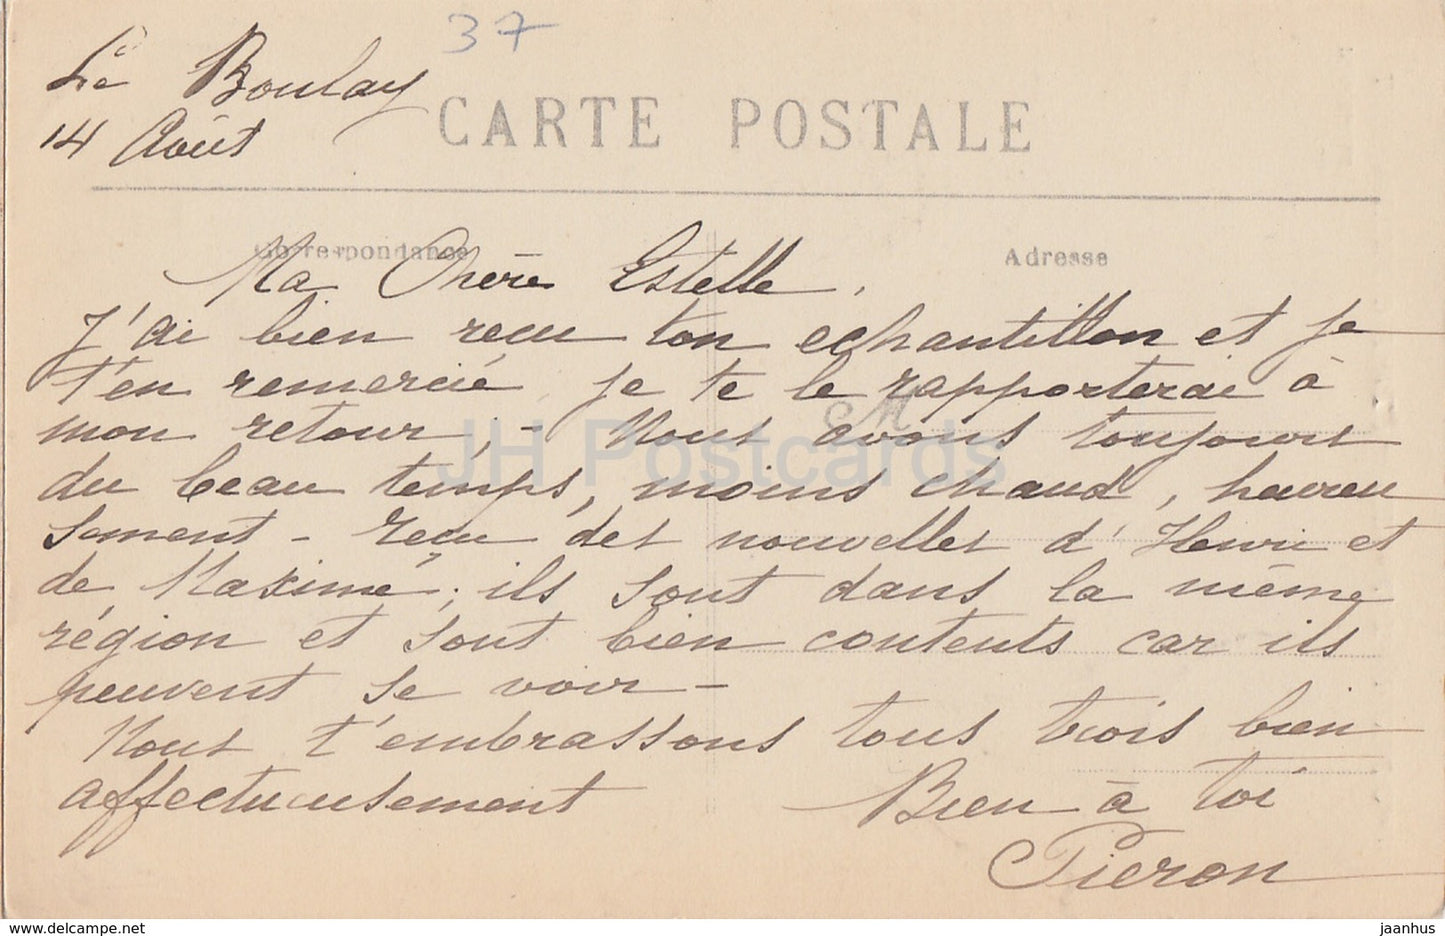 37
Le Boulay
14 Août
CARTE POSTALE
Correspondance
Adresse
Ma Chère Estelle,
J'ai bien recu ton echantillon et je
t'en remercie je te le rapporterai à
M
mon retour, - Nous avons toujours
JH Postcards
du beau temps, moins chaud, heureu
sement - recu des nouvelles d'Henri et
de Maxime, ils sont dans la même
région et sont bien contents car ils
peuvent se voir -
Nous t'embrassons tous trois bien
affectueusement
Bien à toi
Pieron
www.delcampe.net
jaanhus